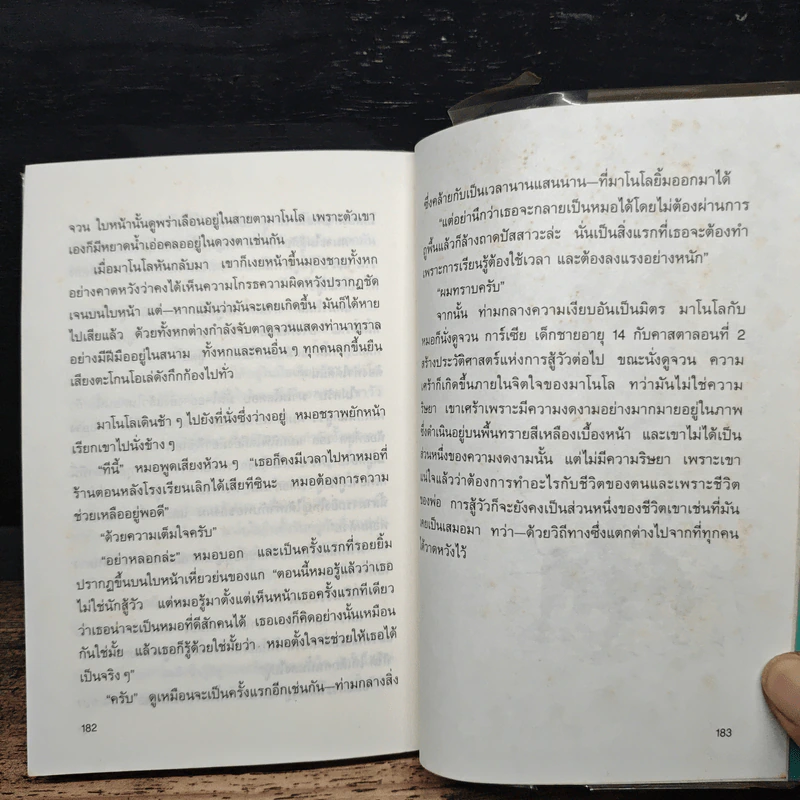 จวน ใบหน้านั้นดูพร่าเลือนอยู่ในสายตามาโนโล เพราะตัวเขา
เองก็มีหยาดน้ำเอ่อคลออยู่ในดวงตาเช่นกัน
เมื่อมาโนโลหันกลับมา เขาก็เงยหน้าขึ้นมองชายทั้งหก
อย่างคาดหวังว่าคงได้เห็นความโกรธความผิดหวังปรากฏชัด
เจนบนใบหน้า แต่—หากแม้นว่ามันจะเคยเกิดขึ้น มันก็ได้หาย
ไปเสียแล้ว ด้วยทั้งหกต่างกำลังจับตาดูจวนแสดงท่านาทูราล
อย่างมีฝีมืออยู่ในสนาม ทั้งหกและคนอื่น ๆ ทุกคนลุกขึ้นยืน
เสียงตะโกนโอเล่ดังกึกก้องไปทั่ว
มาโนโลเดินช้า ๆ ไปยังที่นั่งซึ่งว่างอยู่ หมอชราพยักหน้า
เรียกเขาไปนั่งข้าง ๆ
“ทีนี้” หมอพูดเสียงห้วน ๆ “เธอก็คงมีเวลาไปหาหมอที่
ร้านตอนหลังโรงเรียนเลิกได้เสียทีซินะ หมอต้องการความ
ช่วยเหลืออยู่พอดี”
“ด้วยความเต็มใจครับ”
“อย่าหลอกล่ะ” หมอบอก และเป็นครั้งแรกที่รอยยิ้ม
ปรากฏขึ้นบนใบหน้าเหี่ยวย่นของแก “ตอนนี้หมอรู้แล้วว่าเธอ
ไม่ใช่นักสู้วัว แต่หมอรู้มาตั้งแต่เห็นหน้าเธอครั้งแรกทีเดียว
ว่าเธอน่าจะเป็นหมอที่ดีสักคนได้ เธอเองก็คิดอย่างนั้นเหมือน
กันใช่มั้ย แล้วเธอก็รู้ด้วยใช่มั้ยว่า หมอตั้งใจจะช่วยให้เธอได้
เป็นจริง ๆ”
“ครับ” ดูเหมือนจะเป็นครั้งแรกอีกเช่นกัน—ท่ามกลางสิ่ง
182
ซึ่งคล้ายกับเป็นเวลานานแสนนาน—ที่มาโนโลยิ้มออกมาได้
“แต่อย่านึกว่าเธอจะกลายเป็นหมอได้โดยไม่ต้องผ่านการ
ถูพื้นแล้วก็ล้างถาดปัสสาวะล่ะ นั่นเป็นสิ่งแรกที่เธอจะต้องทำ
เพราะการเรียนรู้ต้องใช้เวลา และต้องลงแรงอย่างหนัก”
“ผมทราบครับ”
จากนั้น ท่ามกลางความเงียบอันเป็นมิตร มาโนโลกับ
หมอก็นั่งดูจวน การ์เซีย เด็กชายอายุ 14 กับคาสตาลอนที่ 2
สร้างประวัติศาสตร์แห่งการสู้วัวต่อไป ขณะนั่งดูจวน ความ
เศร้าก็เกิดขึ้นภายในจิตใจของมาโนโล ทว่ามันไม่ใช่ความ
ริษยา เขาเศร้าเพราะมีความงดงามอย่างมากมายอยู่ในภาพ
ซึ่งดำเนินอยู่บนพื้นทรายสีเหลืองเบื้องหน้า และเขาไม่ได้เป็น
ส่วนหนึ่งของความงดงามนั้น แต่ไม่มีความริษยา เพราะเขา
แน่ใจแล้วว่าต้องการทำอะไรกับชีวิตของตนและเพราะชีวิต
ของพ่อ การสู้วัวก็จะยังคงเป็นส่วนหนึ่งของชีวิตเขาเช่นที่มัน
เคยเป็นเสมอมา ทว่า—ด้วยวิถีทางซึ่งแตกต่างไปจากที่ทุกคน
ได้วาดหวังไว้
183